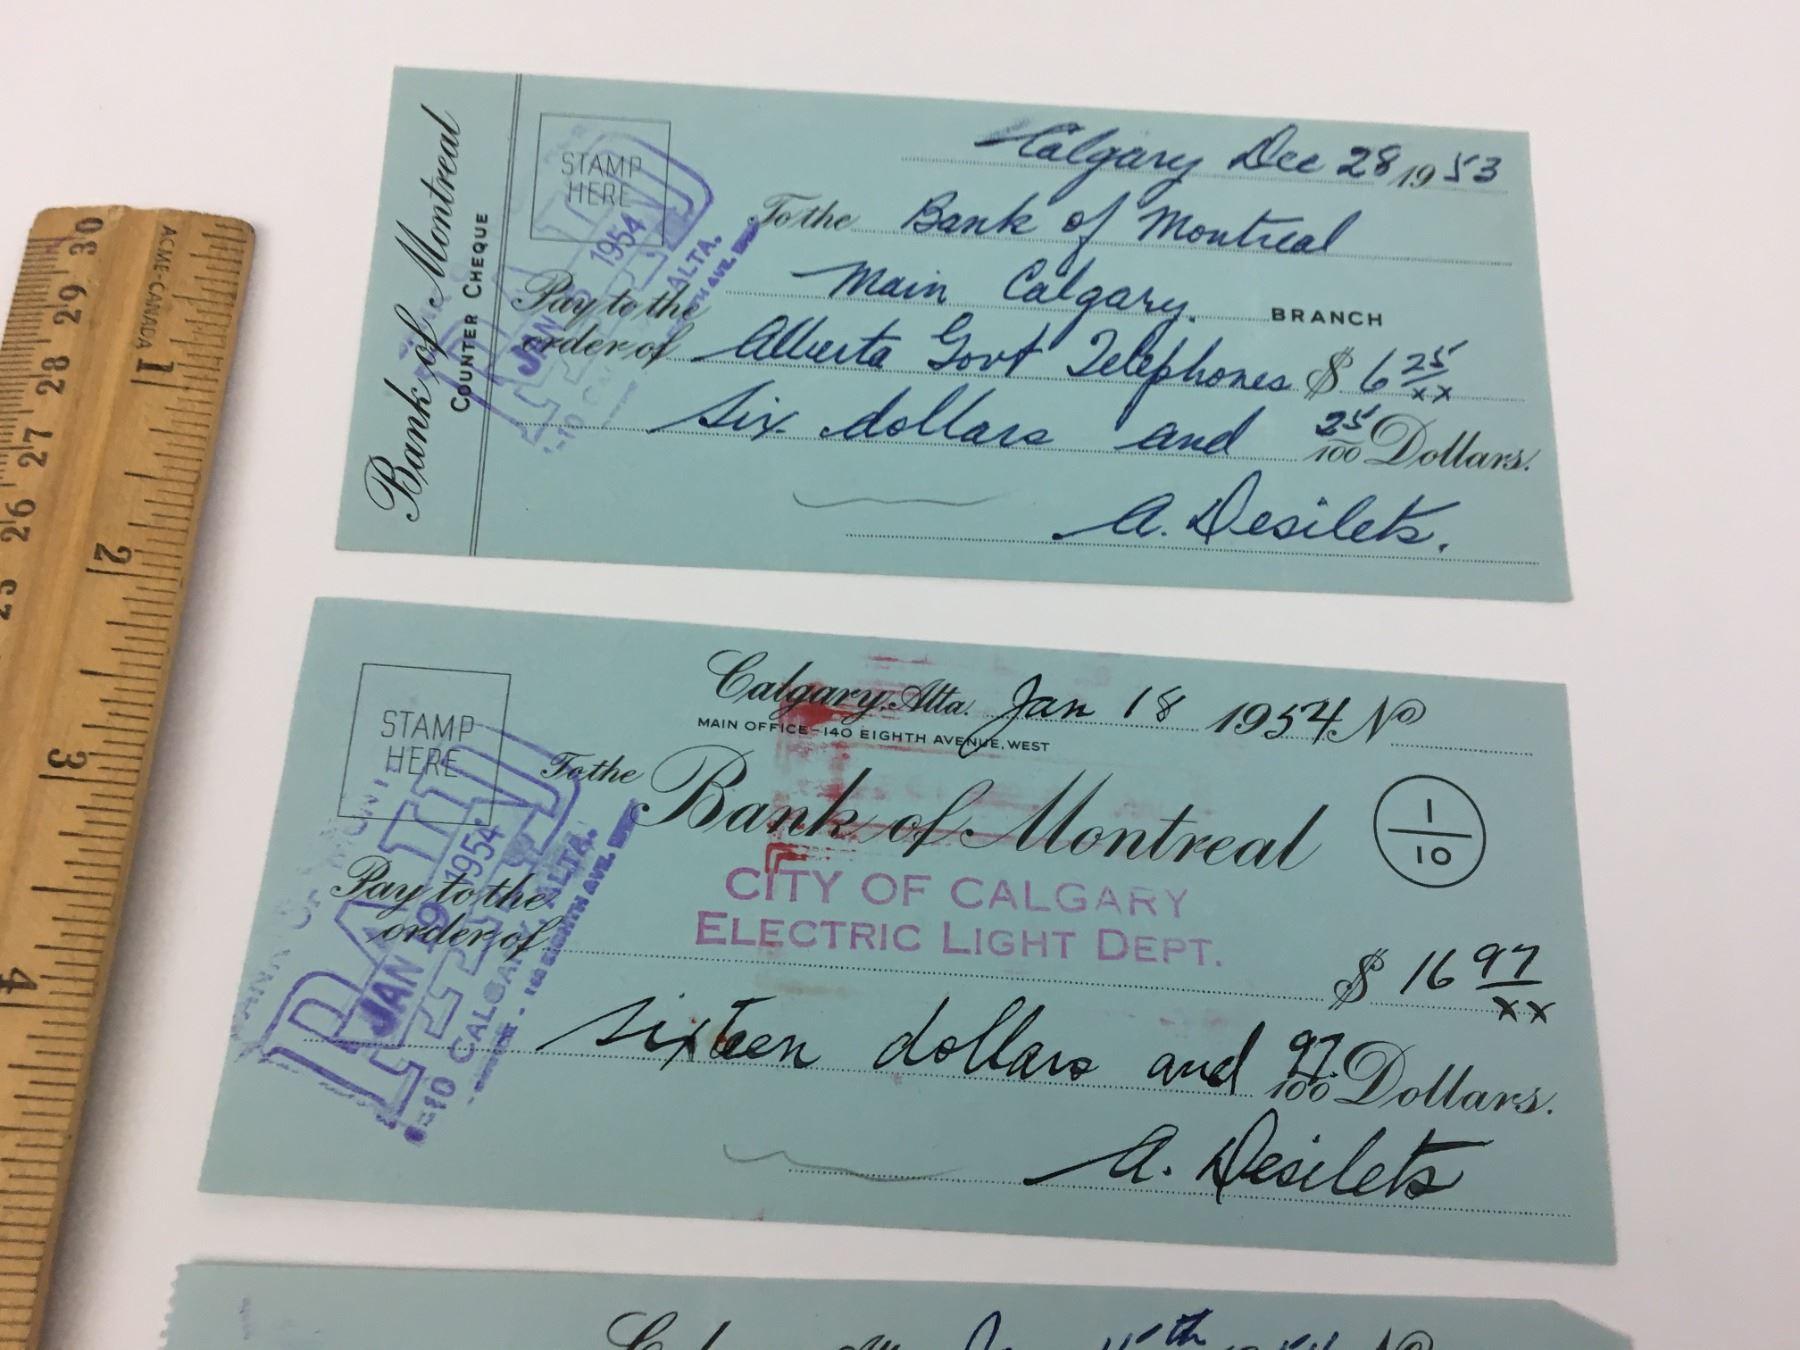 ACME-CANADA
30
29
28
27
26
25
1
2
3
4
Bank of Montreal
COUNTER CHEQUE
STAMP
HERE
Calgary Dec 28 1953
To the Bank of Montreal
Main Calgary. BRANCH
Pay to the
order of Alberta Govt Telephones $ 6 25/xx
six dollars and 25/100 Dollars.
A. Desilets.
PAID
JAN 1954
ALTA.
STAMP
HERE
Calgary, Alta. Jan 18 1954 No
MAIN OFFICE-140 EIGHTH AVENUE, WEST
To the Bank of Montreal
1/10
Pay to the
order of
CITY OF CALGARY
ELECTRIC LIGHT DEPT.
$ 16 97/xx
sixteen dollars and 97/100 Dollars.
A. Desilets
PAID
JAN 19 1954
CALGARY, ALTA.
EIGHTH AVE.